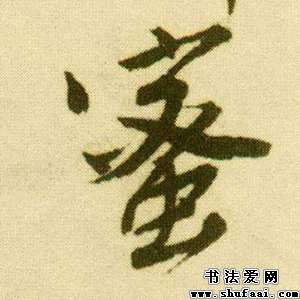 蜜
书法爱网
www.shufaai.com